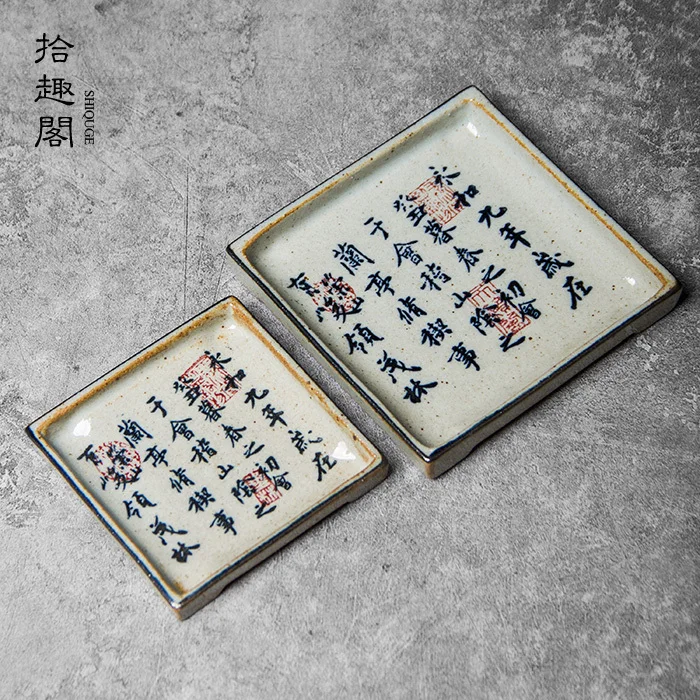 拾趣閣
SHIQUGE
永和九年歲在
癸丑暮春之初會
于會稽山陰之
蘭亭脩禊事
有崇峻領茂林
永和九年歲在
癸丑暮春之初會
于會稽山陰之
蘭亭脩禊事
有崇峻領茂林